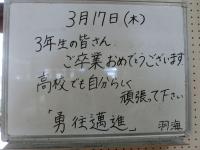 3月17日(木)
3年生の皆さん
ご卒業おめでとうございます
高校でも自分らしく
頑張って下さい
「勇往邁進」
羽海